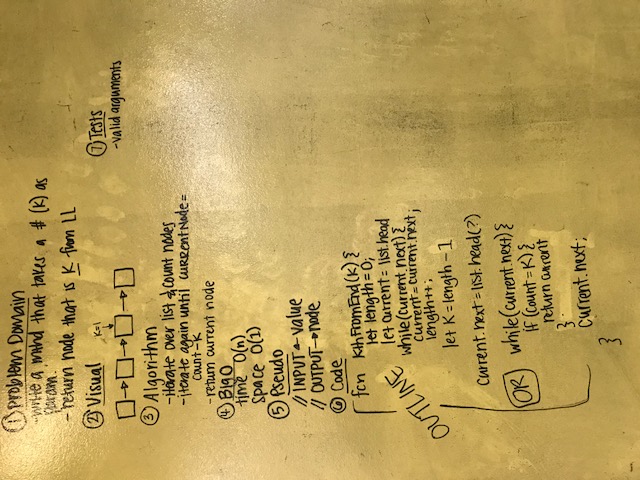 ① Problem Domain
- write a mthd that takes a # (K) as
param.
- return node that is K from LL
② Visual
K=1
③ Algorithm
- iterate over list & count nodes
- iterate again until currentNode=
count-K
- return current node
④ BigO
time O(n)
space O(1)
⑤ Pseudo
// INPUT ← value
// OUTPUT → node
⑥ Code
OUTLINE
fcn KthFromEnd(K) {
let length = 0;
let current = list.head
while(current.next) {
current = current.next;
length++;
let K = length - 1
current.next = list.head(?)
OR
while(current.next) {
if (count = K) {
return current
}
current.next;
}
⑦ Tests
- valid arguments